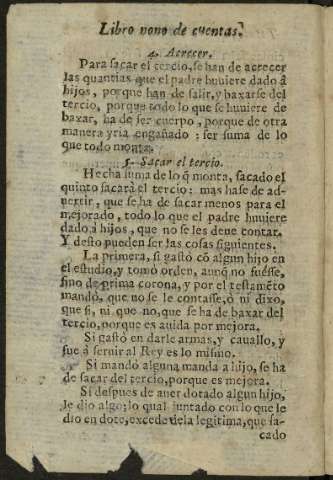 Libro nono de cuentas.
4. Acrecer.
Para sacar el tercio, se han de acrecer
las quantias que el padre huuiere dado à
hijos, porque han de salir, y baxarse del
tercio, porque todo lo que se huuiere de
baxar, ha de ser cuerpo, porque de otra
manera yria engañado: ser suma de lo
que todo monta.
5. Sacar el tercio.
Hecha suma de lo q̃ monta, sacado el
quinto sacarà el tercio: mas hase de ad-
uertir, que se ha de sacar menos para el
mejorado, todo lo que el padre huuiere
dado à hijos, que no se les deue contar.
Y desto pueden ser las cosas siguientes.
La primera, si gastó cõ algun hijo en
el estudio, y tomò orden, aunq̃ no fuesse,
sino de prima corona, y por el testamẽto
mandò, que no se le contasse, ò ni dixo,
que si, ni que no, que se ha de baxar del
tercio, porque es auida por mejora.
Si gastò en darle armas, y cauallo, y
fue à seruir al Rey es lo mismo.
Si mandò alguna manda a hijo, se ha
de sacar del tercio, porque es mejora.
Si despues de auer dotado algun hijo,
le dio algo; lo qual juntado con lo que le
dio en dote, excede dela legitima, que sa-
cado